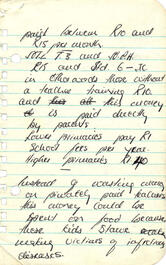 paid between R10 and
R15 per month
JMC I-3 and M.A.H.
R15 and Std. 6-JC
in otherwords those without
a teacher training R10
and this money
is paid directly
by parents
Lower Primaries pay R1
School fees per year.
Higher primaries
Instead of wasting money
on privately paid teachers
this money could be
spent on food because
these kids starve
making victims of infectious
diseases.